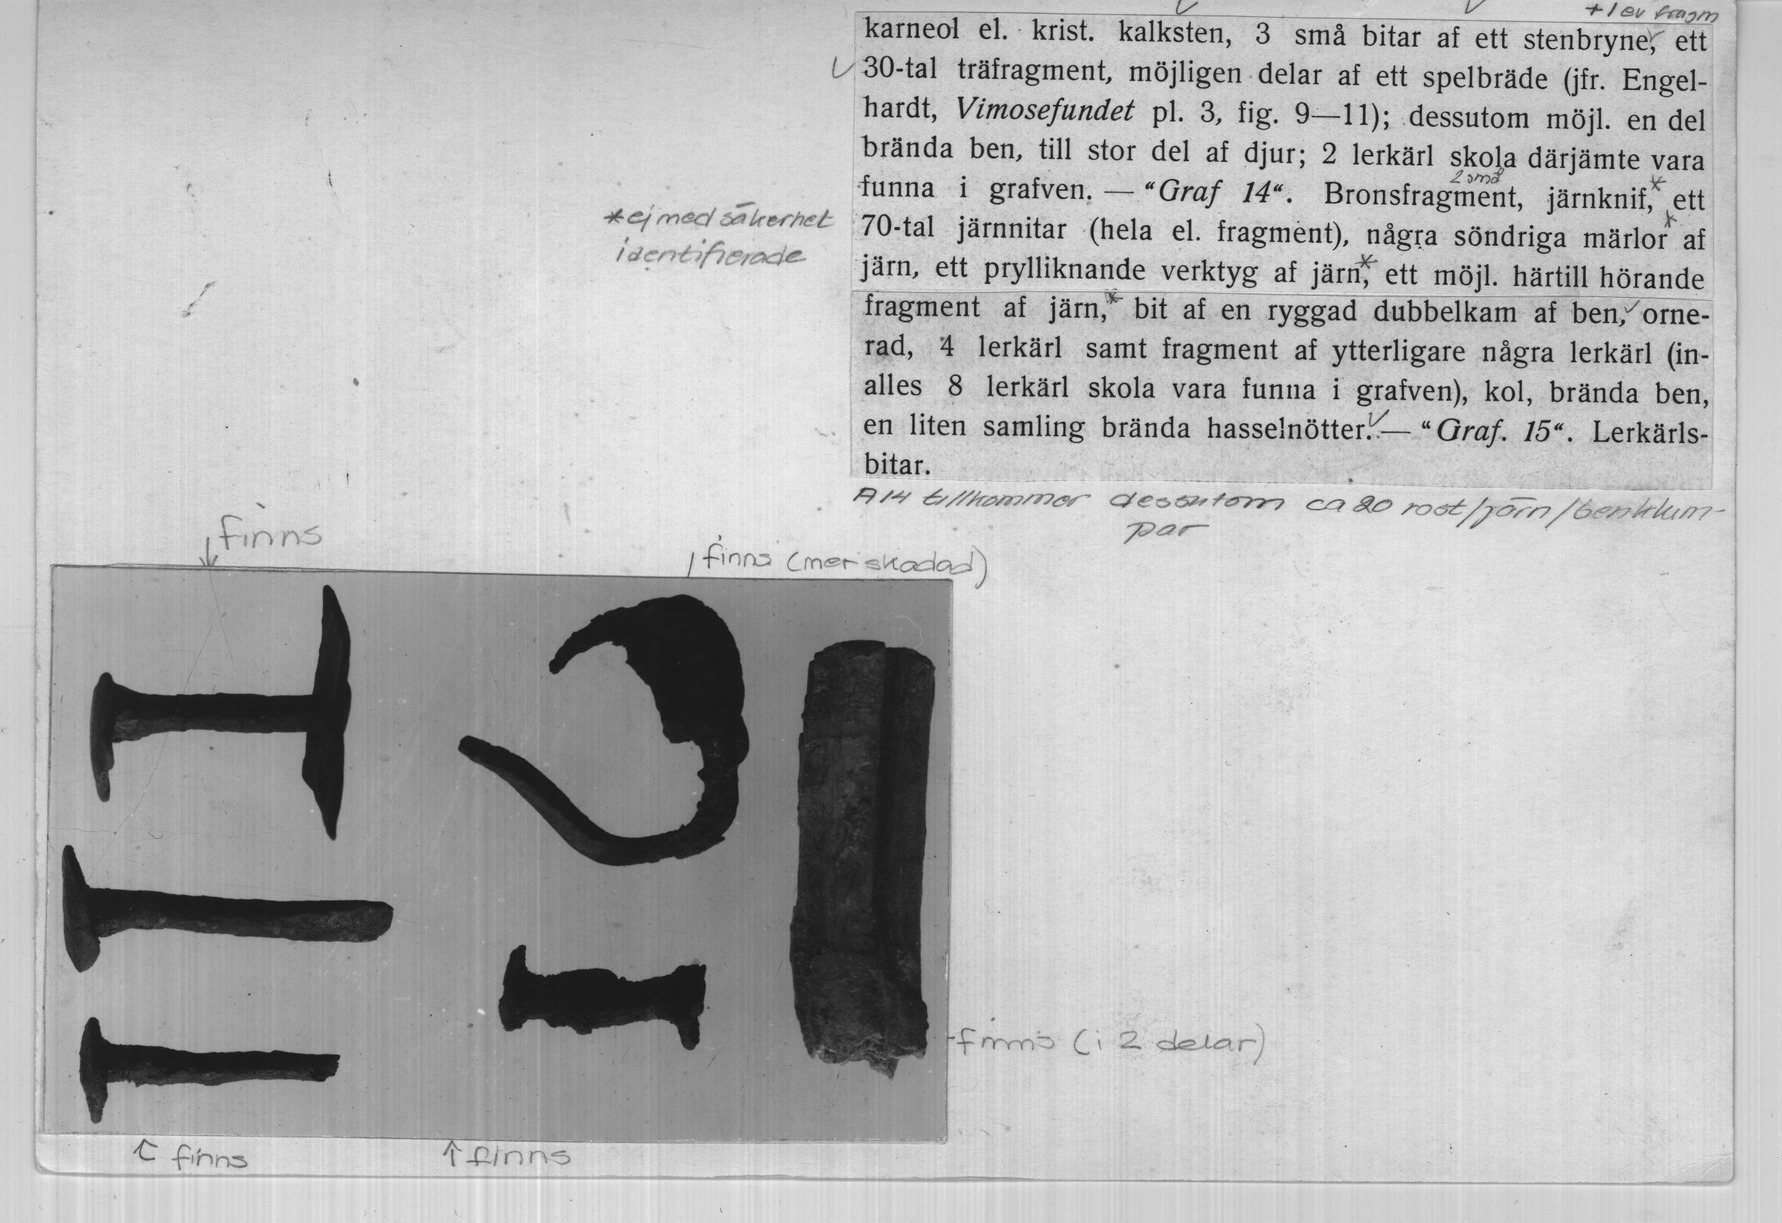 + 1 ev fragm
karneol el. krist. kalksten, 3 små bitar af ett stenbryne, ett
30-tal träfragment, möjligen delar af ett spelbräde (jfr. Engel-
hardt, Vimosefundet pl. 3, fig. 9—11); dessutom möjl. en del
brända ben, till stor del af djur; 2 lerkärl skola därjämte vara
2 små
funna i grafven. — “Graf 14“. Bronsfragment, järnknif,* ett
70-tal järnnitar (hela el. fragment), några söndriga märlor* af
järn, ett prylliknande verktyg af järn,* ett möjl. härtill hörande
fragment af järn,* bit af en ryggad dubbelkam af ben, orne-
rad, 4 lerkärl samt fragment af ytterligare några lerkärl (in-
alles 8 lerkärl skola vara funna i grafven), kol, brända ben,
en liten samling brända hasselnötter. — “Graf. 15“. Lerkärls-
bitar.
* ej med säkerhet
identifierade
A14 tillkommer dessutom ca 20 rost/järn/benklum-
par
finns
finns (mer skadad)
finns (i 2 delar)
finns
finns